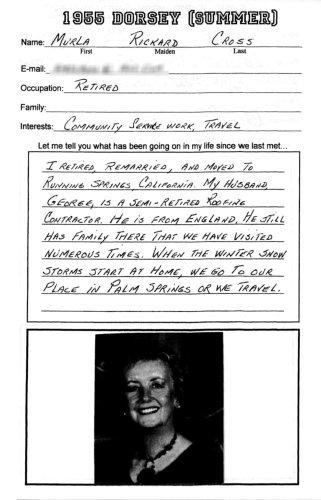 1955 DORSEY (SUMMER)
Name: MURLA RICKARD CROSS
First Maiden Last
E-mail:
Occupation: RETIRED
Family:
Interests: COMMUNITY SERVICE WORK, TRAVEL
Let me tell you what has been going on in my life since we last met...
I RETIRED, REMARRIED, AND MOVED TO
RUNNING SPRINGS, CALIFORNIA. MY HUSBAND,
GEORGE, IS A SEMI-RETIRED ROOFING
CONTRACTOR. HE IS FROM ENGLAND. HE STILL
HAS FAMILY THERE THAT WE HAVE VISITED
NUMEROUS TIMES. WHEN THE WINTER SNOW
STORMS START AT HOME, WE GO TO OUR
PLACE IN PALM SPRINGS OR WE TRAVEL.